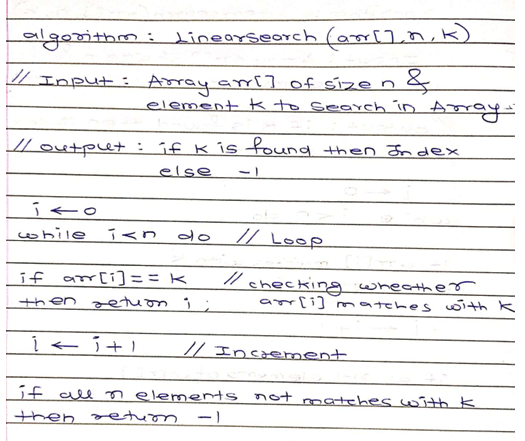 algorithm : Linearsearch (arr[], n, k)
// Input : Array arr[] of size n &
element k to search in Array.
// output : if k is found then Index
else -1
i ← 0
while i<n do // Loop
if arr[i] == k // checking wheather
then return i ; arr[i] matches with k
i ← i+1 // Increment
if all n elements not matches with k
then return -1